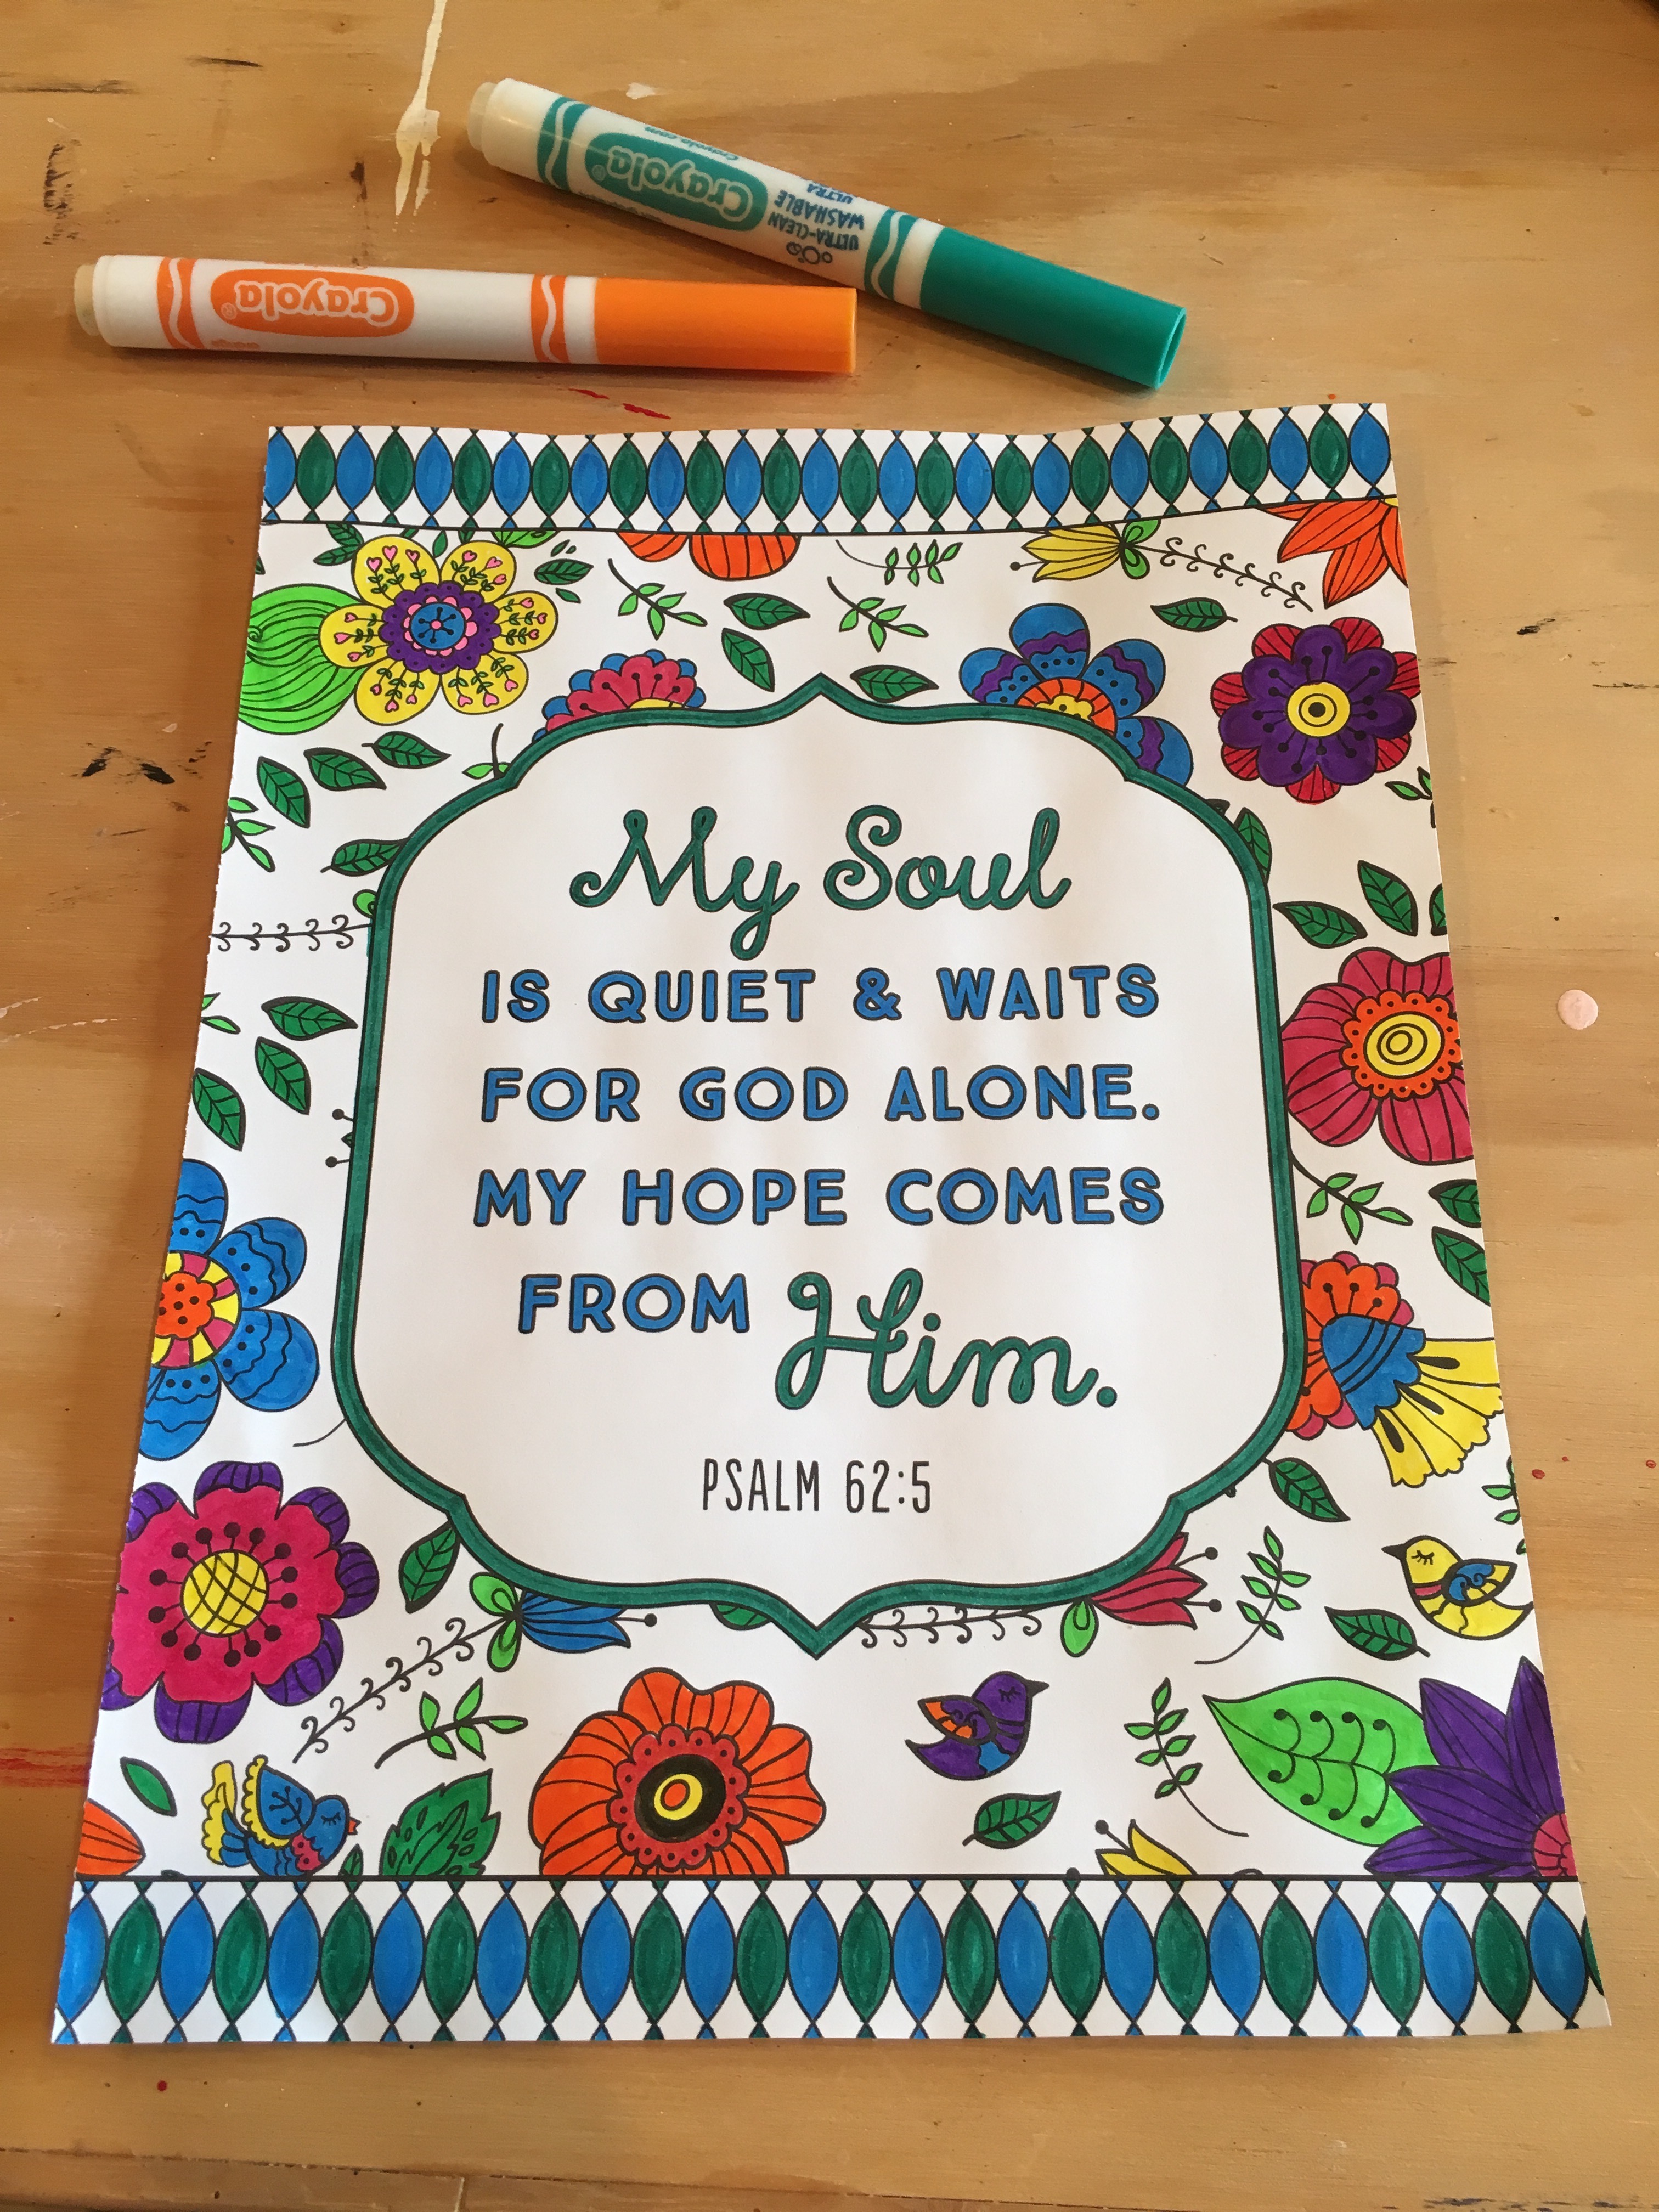 Crayola.com
Crayola®
ULTRA-CLEAN
WASHABLE
ULTRA
Crayola®
My Soul
IS QUIET & WAITS
FOR GOD ALONE.
MY HOPE COMES
FROM Him.
PSALM 62:5